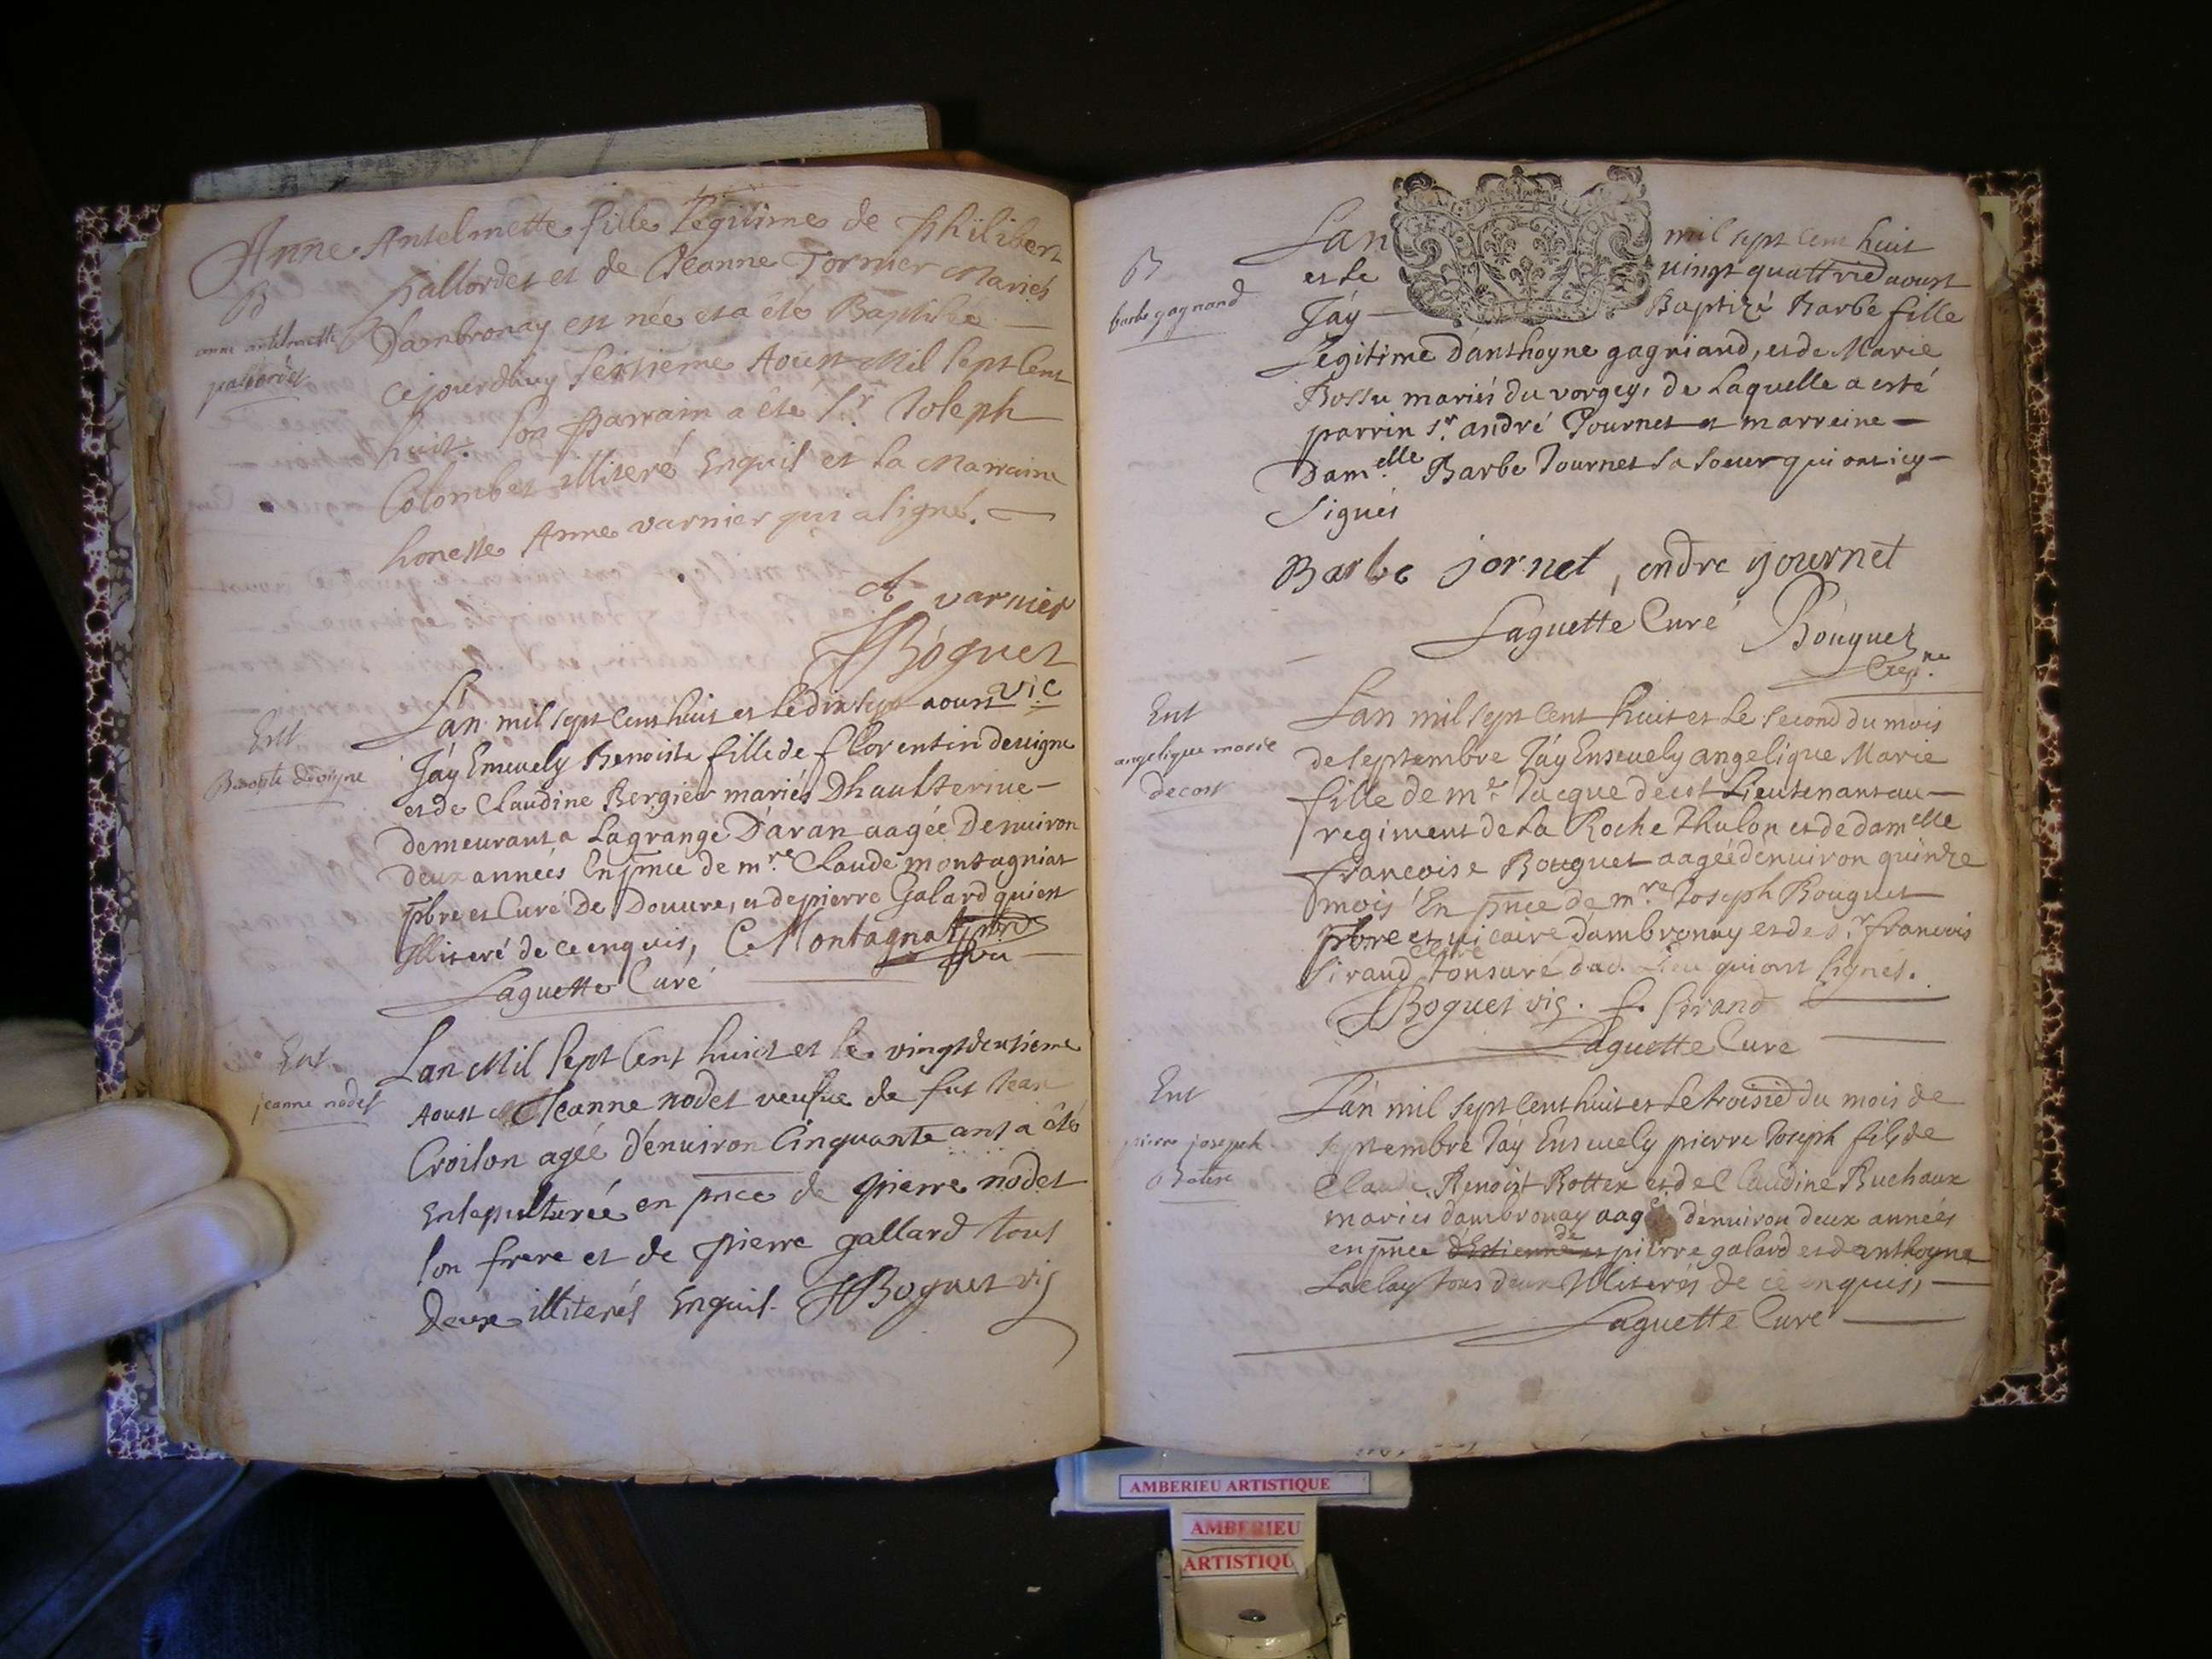 Anne Antelmette fille légitime de philibert
pallordet et de Jeanne Tornier Mariés
B
anne antelmette
pallordet
Dambronay est née et a été Baptisée
cejourdhuy seisieme Aoust Mil sept Cent
huit. son parrain a été Sr. Joseph
Colombet illiteré Enquis et la Marraine
honeste Anne varnier qui a signé.
A varnier
JBoguet
vic
Ent
Benoiste devigne
Lan mil sept cent huit et le dix sept aoust
Jáy Enseuely Benoiste fille de florentin devigne
et de Claudine Bergier mariés Dhaulterive
demeurant a Lagrange Daran aagée Denuiron
deux années En pnce de mre. Claude montagniat
pbre et Curé De Douure, et de pierre Galard qui est
Illiteré de ce enquis, C. Montagnat pbre
Laguette Curé
Ent
jeanne nodet
Lan Mil sept Cent huict et le vingtdeusieme
Aoust Jeanne nodet veufue de fut Jean
Croison agée d'enuiron Cinquante ans a été
Ensepulturée en pnce de pierre nodet
son frere et de pierre gallard tous
Deux illiterés Enquis. JBoguet vis
B
barbe gagnand
Lan mil sept cent huit
et le vingt quattrie aoust
Jáy Baptizé Barbe fille
Legitime D'anthoyne gagniand, et de Marie
Bossu mariés du vorgey, de Laquelle a esté
parrin sr. andré Journet et marreine
Dam.elle Barbe Journet sa soeur qui ont icy
signés
Barbe jornet, endre yournet
Laguette Curé Bouquet
Ent
angelique marie
decost
Lan mil sept cent huit et Le second du mois
de septembre Jáy Enseuely angelique Marie
fille de mr. Jacque decost Lieutenant au
regiment de la Roche Thulon et de damelle
francoise Bouguet aagée dénuiron quinze
mois En pnce de mre. Joseph Bouguet
pbre et uicaire d'ambronay et de sr. francois
Sirand clerc tonsuré dud. Lieu qui ont signés.
JBoguet vis. f. sirand
Laguette Cure
Ent
pierre joseph
Bottex
Lán mil sept cent huit et Le troisie du mois de
septembre Jáy Enseuely pierre Joseph fils de
Claude Benoist Bottex et de Claudine Ruchaux
mariés dambronay aagé dénuiron deux années
en pnce d'Estienne et de pierre galard et de anthoyne
Laelay tous deux Illiterés de ce enquis,
Laguette Curé
AMBERIEU ARTISTIQUE
AMBERIEU
ARTISTIQU